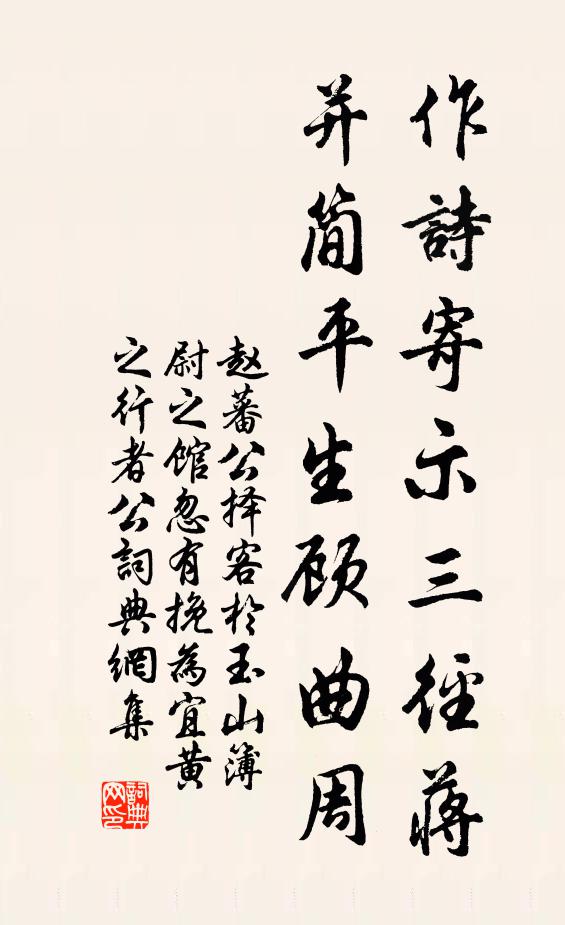 作詩寄示三徑蔣
并简平生顾曲周
赵蕃公择客於玉山簿
尉之馆忽有挽為宜黄
之行者公詞典網集
詞典网印